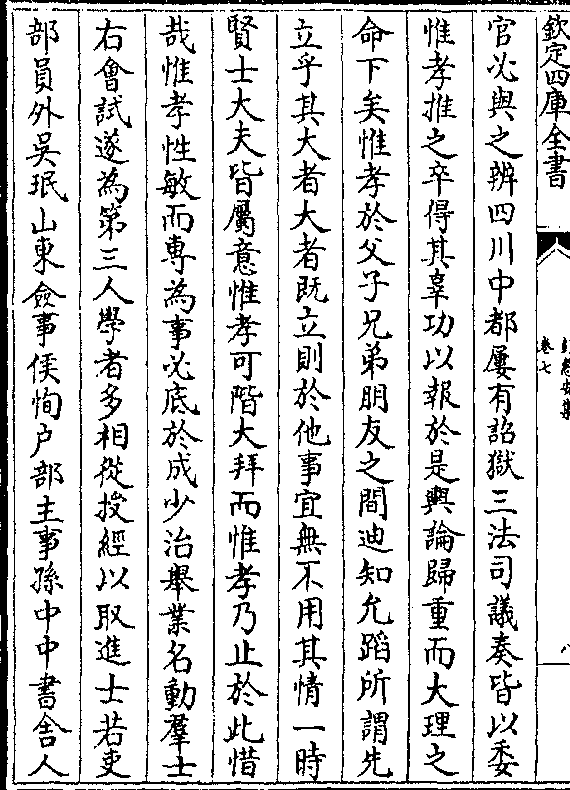 欽定四庫全書
卷七
八
官必與之辨四川中都屢有詔獄三法司議奏皆以委
惟孝推之卒得其辜功以報於是輿論歸重而大理之
命下矣惟孝於父子兄弟朋友之間迪知允蹈所謂先
立乎其大者大者既立則於他事宜無不用其情一時
賢士大夫皆屬意惟孝可階大拜而惟孝乃止於此惜
哉惟孝性敏而專為事必底於成少治舉業名動羣士
右會試遂為第三人學者多相從授經以取進士若吏
部員外吳珉山東僉事侯恂户部主事孫中中書舍人